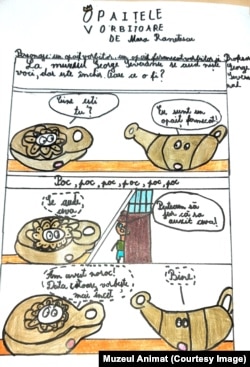 OPAIȚELE
VORBITOARE
DE Mara Ranetescu
Personaje: un opaiț vorbitor, un opaiț fermecat vorbitor și Profesor
La muzeul George Severeanu se aud niște George
voci, dar este închis. Oare ce o fi?
Cine ești
tu?
Eu sunt un
opaiț fermecat!
Poc, poc, poc, poc, poc, poc
Se aude
ceva.
Puteam să
jur că am
auzit ceva!
Am avut noroc!
Data viitoare vorbește
mai încet.
Bine!
Muzeul Animat (Courtesy Image)